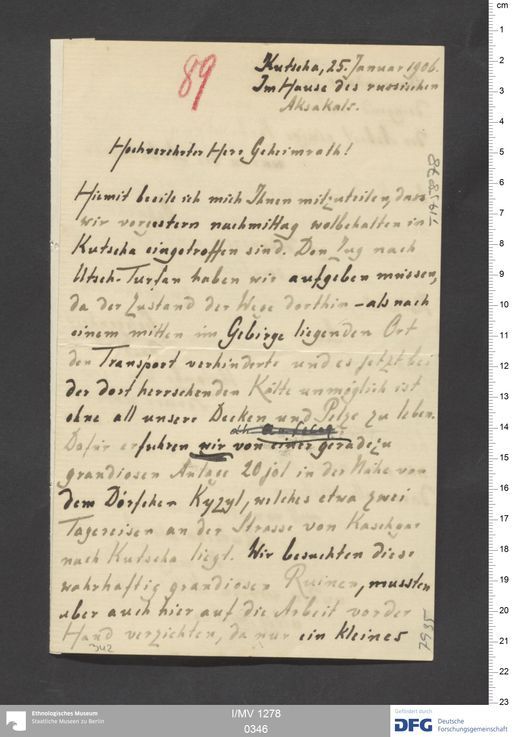 89
Kutscha, 25. Januar 1906.
Im Hause des russischen
Aksakals.
Hochverehrter Herr Geheimrath!
Hiemit beeile ich mich Ihnen mitzuteilen, dass
wir vorgestern nachmittag wolbehalten in
Kutscha eingetroffen sind. Den Zug nach
Utsch-Turfan haben wir aufgeben müssen,
da der Zustand der Wege dorthin – als nach
einem mitten im Gebirge liegenden Ort
den Transport verhinderte und es jetzt bei
der dort herrschenden Kälte unmöglich ist
ohne all unsere Decken und Pelze zu leben.
Dafür erfuhren wir von einer geradezu
grandiosen Anlage 20 jol in der Nähe von
dem Dörfchen Kyzyl, welches etwa zwei
Tagereisen an der Strasse von Kaschgar
nach Kutscha liegt. Wir besuchten diese
wahrhaftig grandiosen Ruinen, mussten
aber auch hier auf die Arbeit vorder
Hand verzichten, da nur ein kleines
342
7935
cm
1
2
3
4
5
6
7
8
9
10
11
12
13
14
15
16
17
18
19
20
21
22
23
Ethnologisches Museum
Staatliche Museen zu Berlin
I/MV 1278
0346
Gefördert durch
DFG Deutsche
Forschungsgemeinschaft